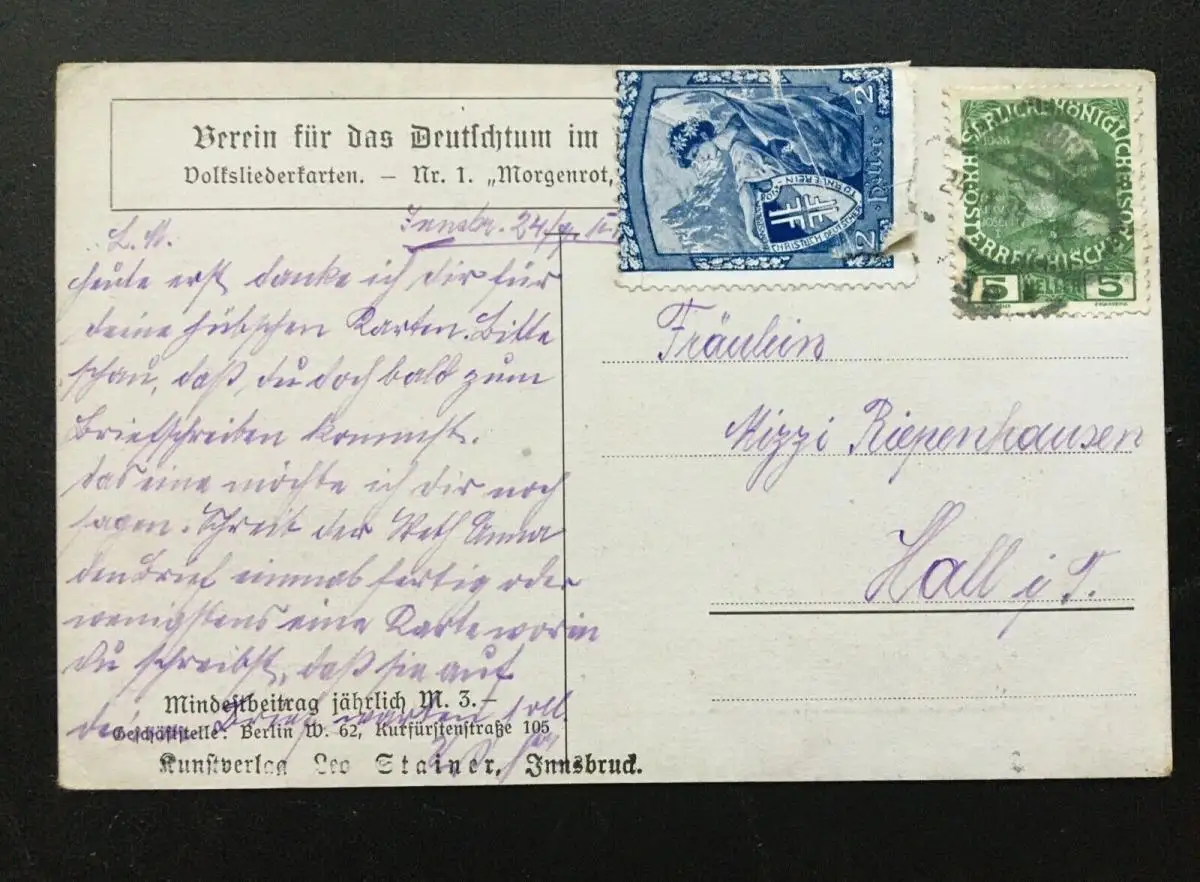 Verein für das Deutschtum im
Volksliederkarten. – Nr. 1. „Morgenrot,
2 Heller 2
KAISERLICHE KÖNIGLICHE
ÖSTERREICHISCHE
5 HELLER 5
L. M.
Innsbr. 24/9.
heute erst danke ich dir für
deine hübschen Karten. Bitte
schau, daß du doch bald zum
Briefschreiben kommst.
das eine möchte ich dir noch
sagen. Schreib der Anna
den Brief einmal fertig oder
wenigstens eine Karte worin
du schreibst, daß sie auf
deinen Brief warten soll.
Fräulein
Mizzi Riepenhausen
Hall i. T.
Mindestbeitrag jährlich M. 3.–
Geschäftstelle: Berlin W. 62, Kurfürstenstraße 105
Kunstverlag Leo Stainer, Innsbruck.